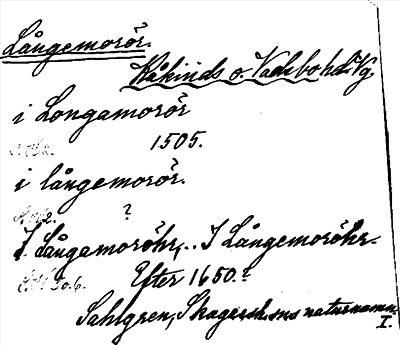 Långemorör.
Kåkinds o. Vadsbo hd. Vg.
i Longamorör
1505.
i långemorör.
?
I Långamoröhr,.. I Långemoröhr.
Efter 1650.?
Sahlgren, Skagersh. sns naturnamn.
I.